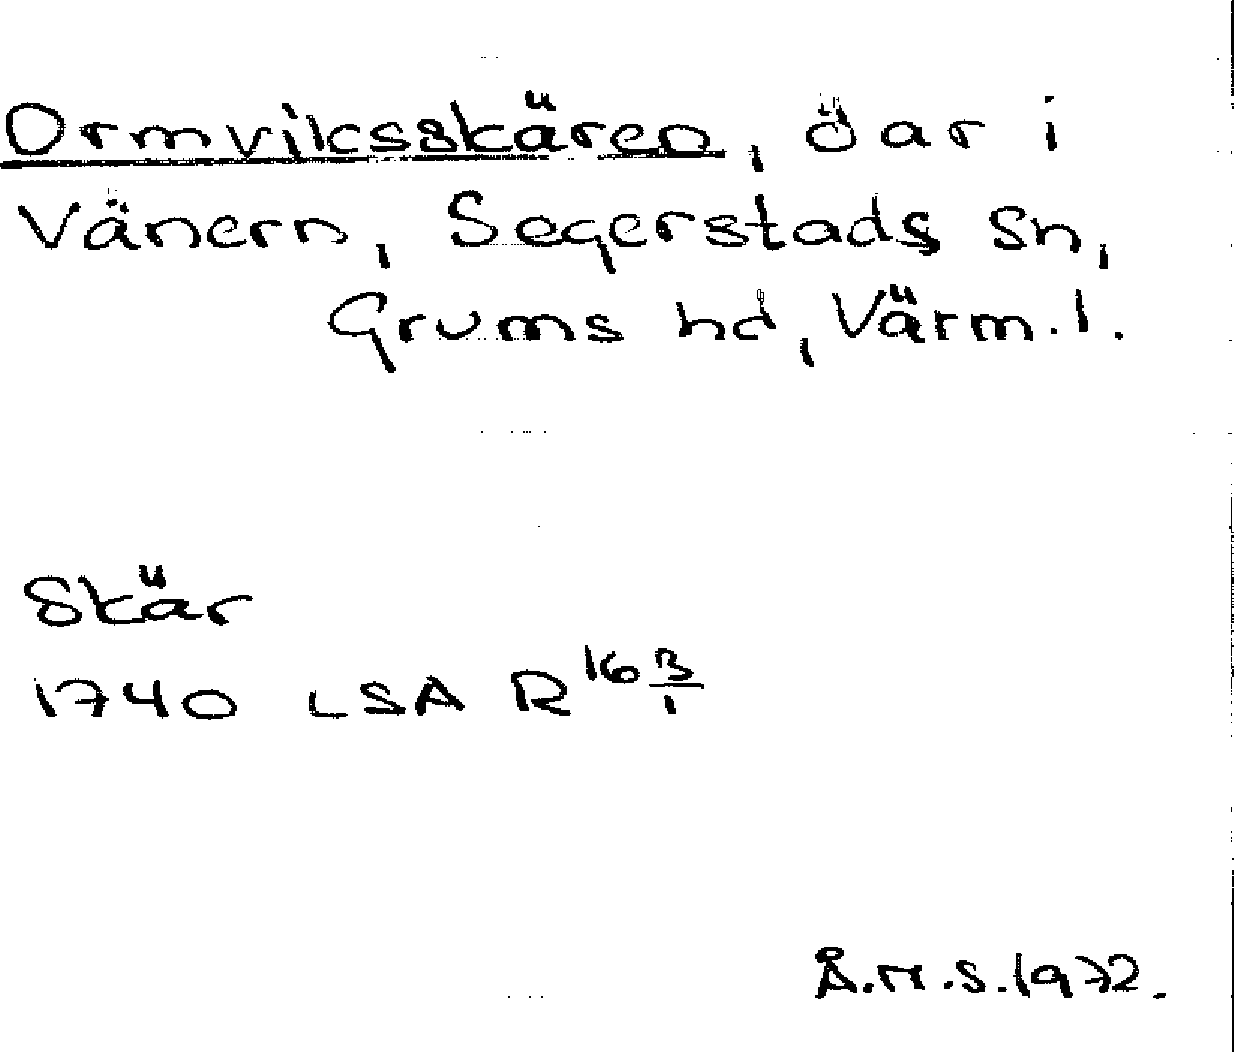 Ormviksskären, öar i
Vänern, Segerstads sn,
Grums hd, Värm.l.
Skär
1740 LSA R 16 B/1
Å.H.S. 1972.